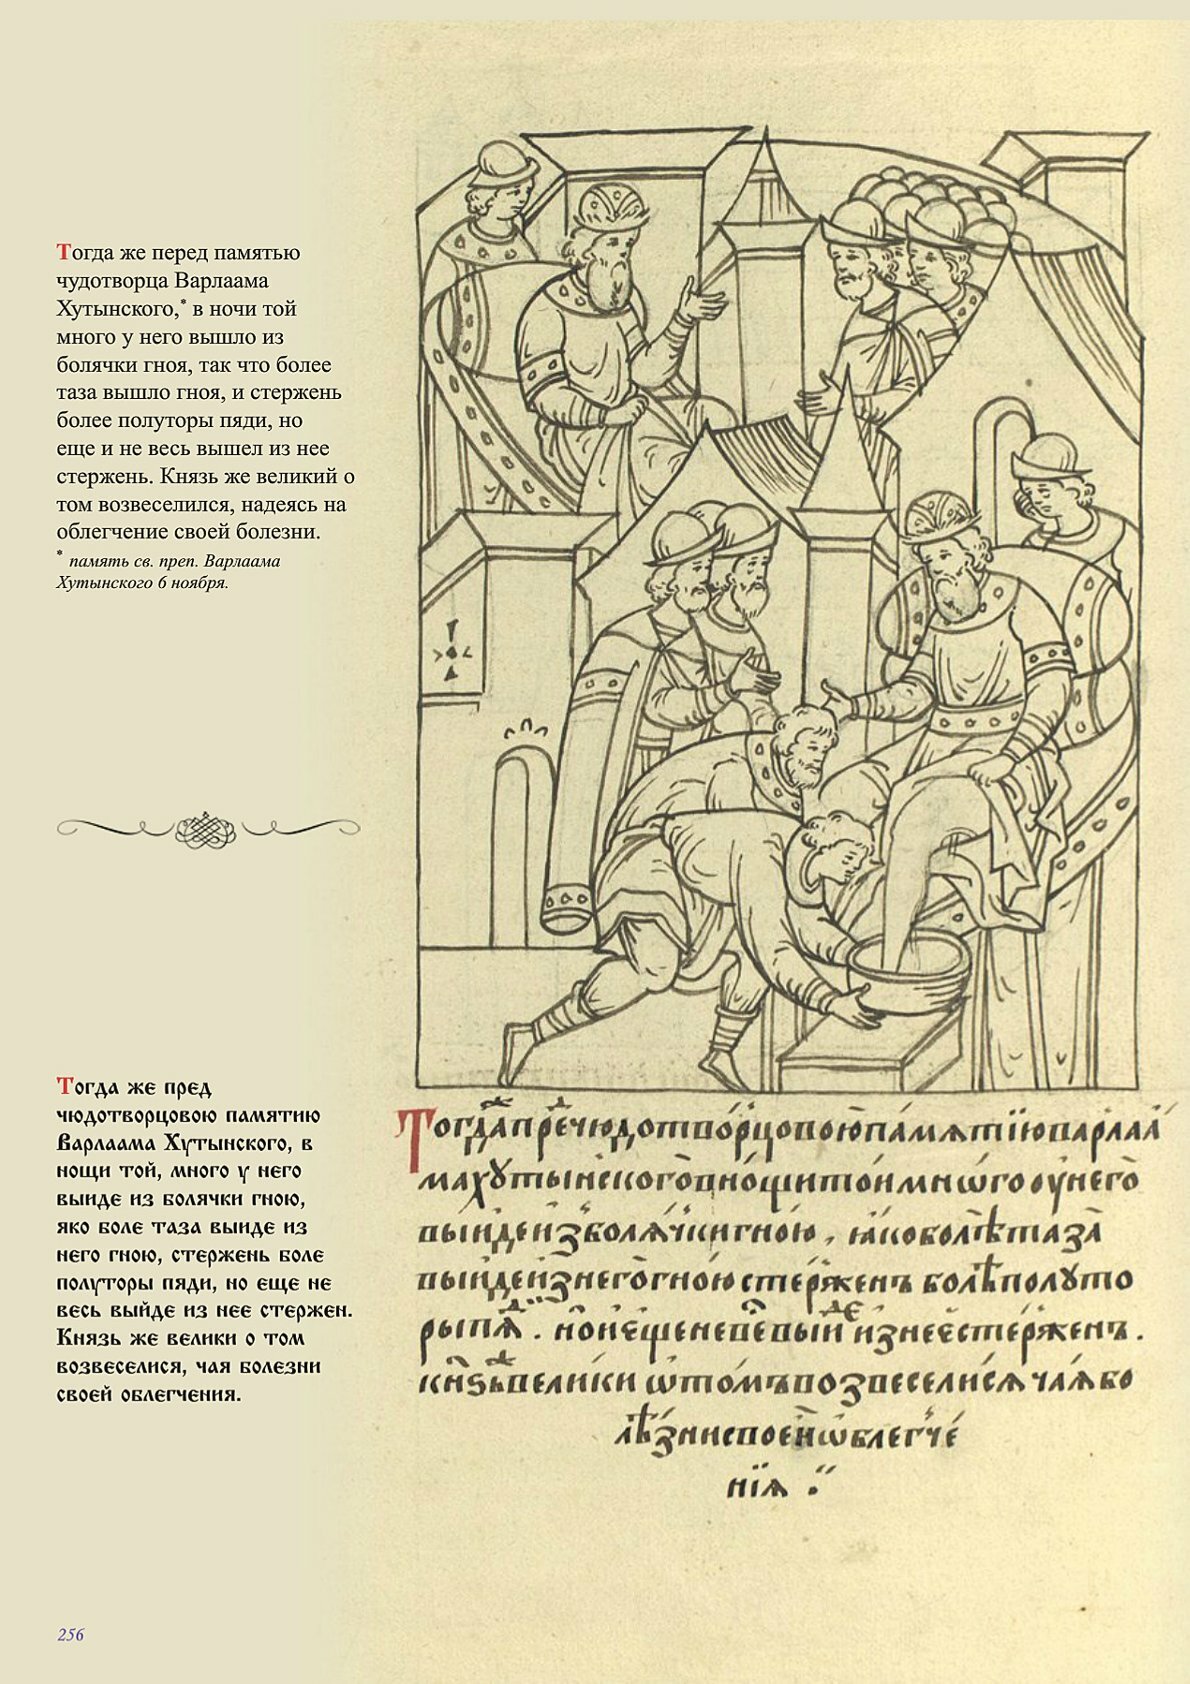 Тогда же перед памятью
чудотворца Варлаама
Хутынского,* в ночи той
много у него вышло из
болячки гноя, так что более
таза вышло гноя, и стержень
более полуторы пяди, но
еще и не весь вышел из нее
стержень. Князь же великий о
том возвеселился, надеясь на
облегчение своей болезни.
* память св. преп. Варлаама
Хутынского 6 ноября.
Тогда же пред
чюдотворцовою памятию
Варлаама Хутынского, в
нощи той, много у него
выиде из болячки гною,
яко боле таза выиде из
него гною, стержень боле
полуторы пяди, но еще не
весь выйде из нее стержен.
Князь же велики о том
возвеселися, чая болезни
своей облегчения.
256
Тогдаⷤпреⷣчюдотворцовоюпамѧтїюварлаа
махꙋтынскогѡвнощитоимнѡгоѹнего
выидеизболѧчкигною, ꙗкоболѣтаза
выидеизнегогною стерженъ болѣполꙋто
рыпѧⷣ. ноиещеневеⷭвыиⷣеизнеестерженъ.
кн҃ѕьⷤвелики ѡтомъвозвеселисѧчаѧбо
лѣзнисвоеиѡблегче
нїѧ